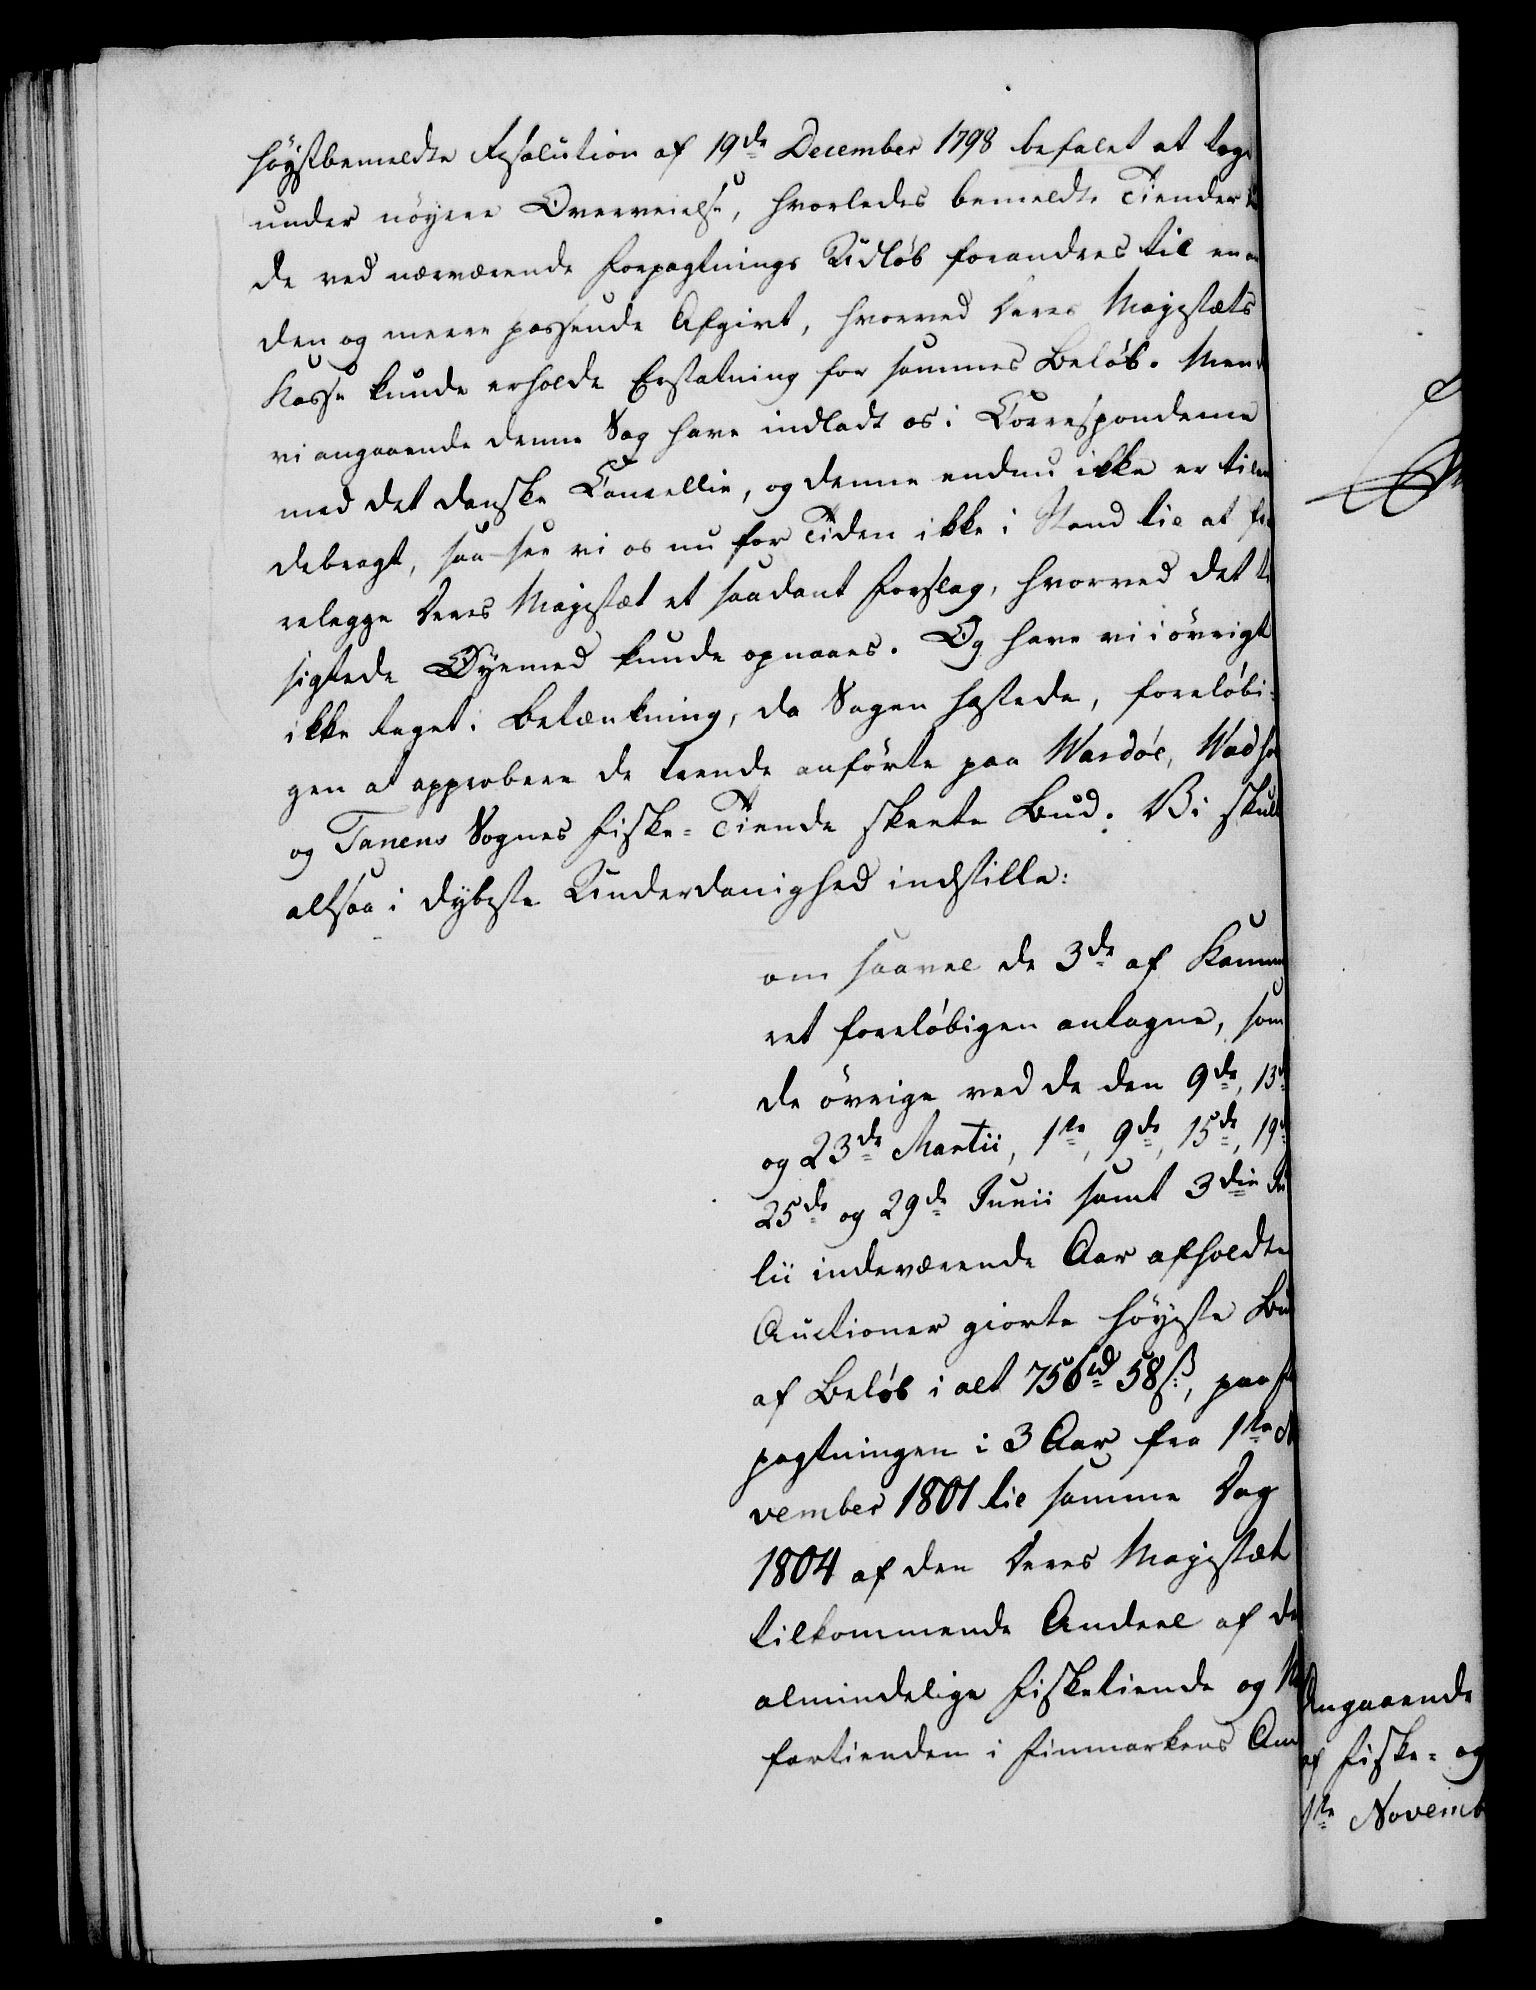 höystbemeldte Resolution af 19de December 1798 befalet at tage
under nöyere Overveielse, hvorledes bemeldte Tiender
de ved nærværende Forpagtnings Udløb forandres til en
den og meere passende Afgivt, hvorved Deres Majestæts
Kasse kunde erholde Erstatning for sammes Beløb. Men
vi angaaende denne Sag have indladt os i Correspondence
med det danske Cancellie, og denne endnu ikke er tilen
debragt, saa see vi os nu for Tiden ikke i Stand til at fo
relegge Deres Majestæt et saadant Forslag, hvorved det
sigtede Øyemed kunde opnaaes. Og have vi i övrigt
ikke taget i Betænkning, da Sagen hastede, foreløbi-
gen at approbere de trende anførte paa Wardöe, Wadsö
og Tanens Sognes Fiske-Tiende skeete Bud. Vi skull
altsaa i dybeste Underdanighed indstille:
om saavel de 3de af Kamme
ret foreløbigen antagne, som
de övrige ved de den 9de, 13de
og 23de Martii, 1ste, 9de, 15de, 19de
25de og 29de Junii samt 3die Ju
lii indeværende Aar afholdte
Auctioner giorte höyeste Bud
af Beløb i alt 756rd 58ß, paa For
pagtningen i 3 Aar fra 1ste No
vember 1801 til samme Dag
1804 af den Deres Majestæt
tilkommende Andeel af de
almindelige Fisketiende og
fartienden i Finmarkens Am
Angaaende
af Fiske- og
1ste Novemb